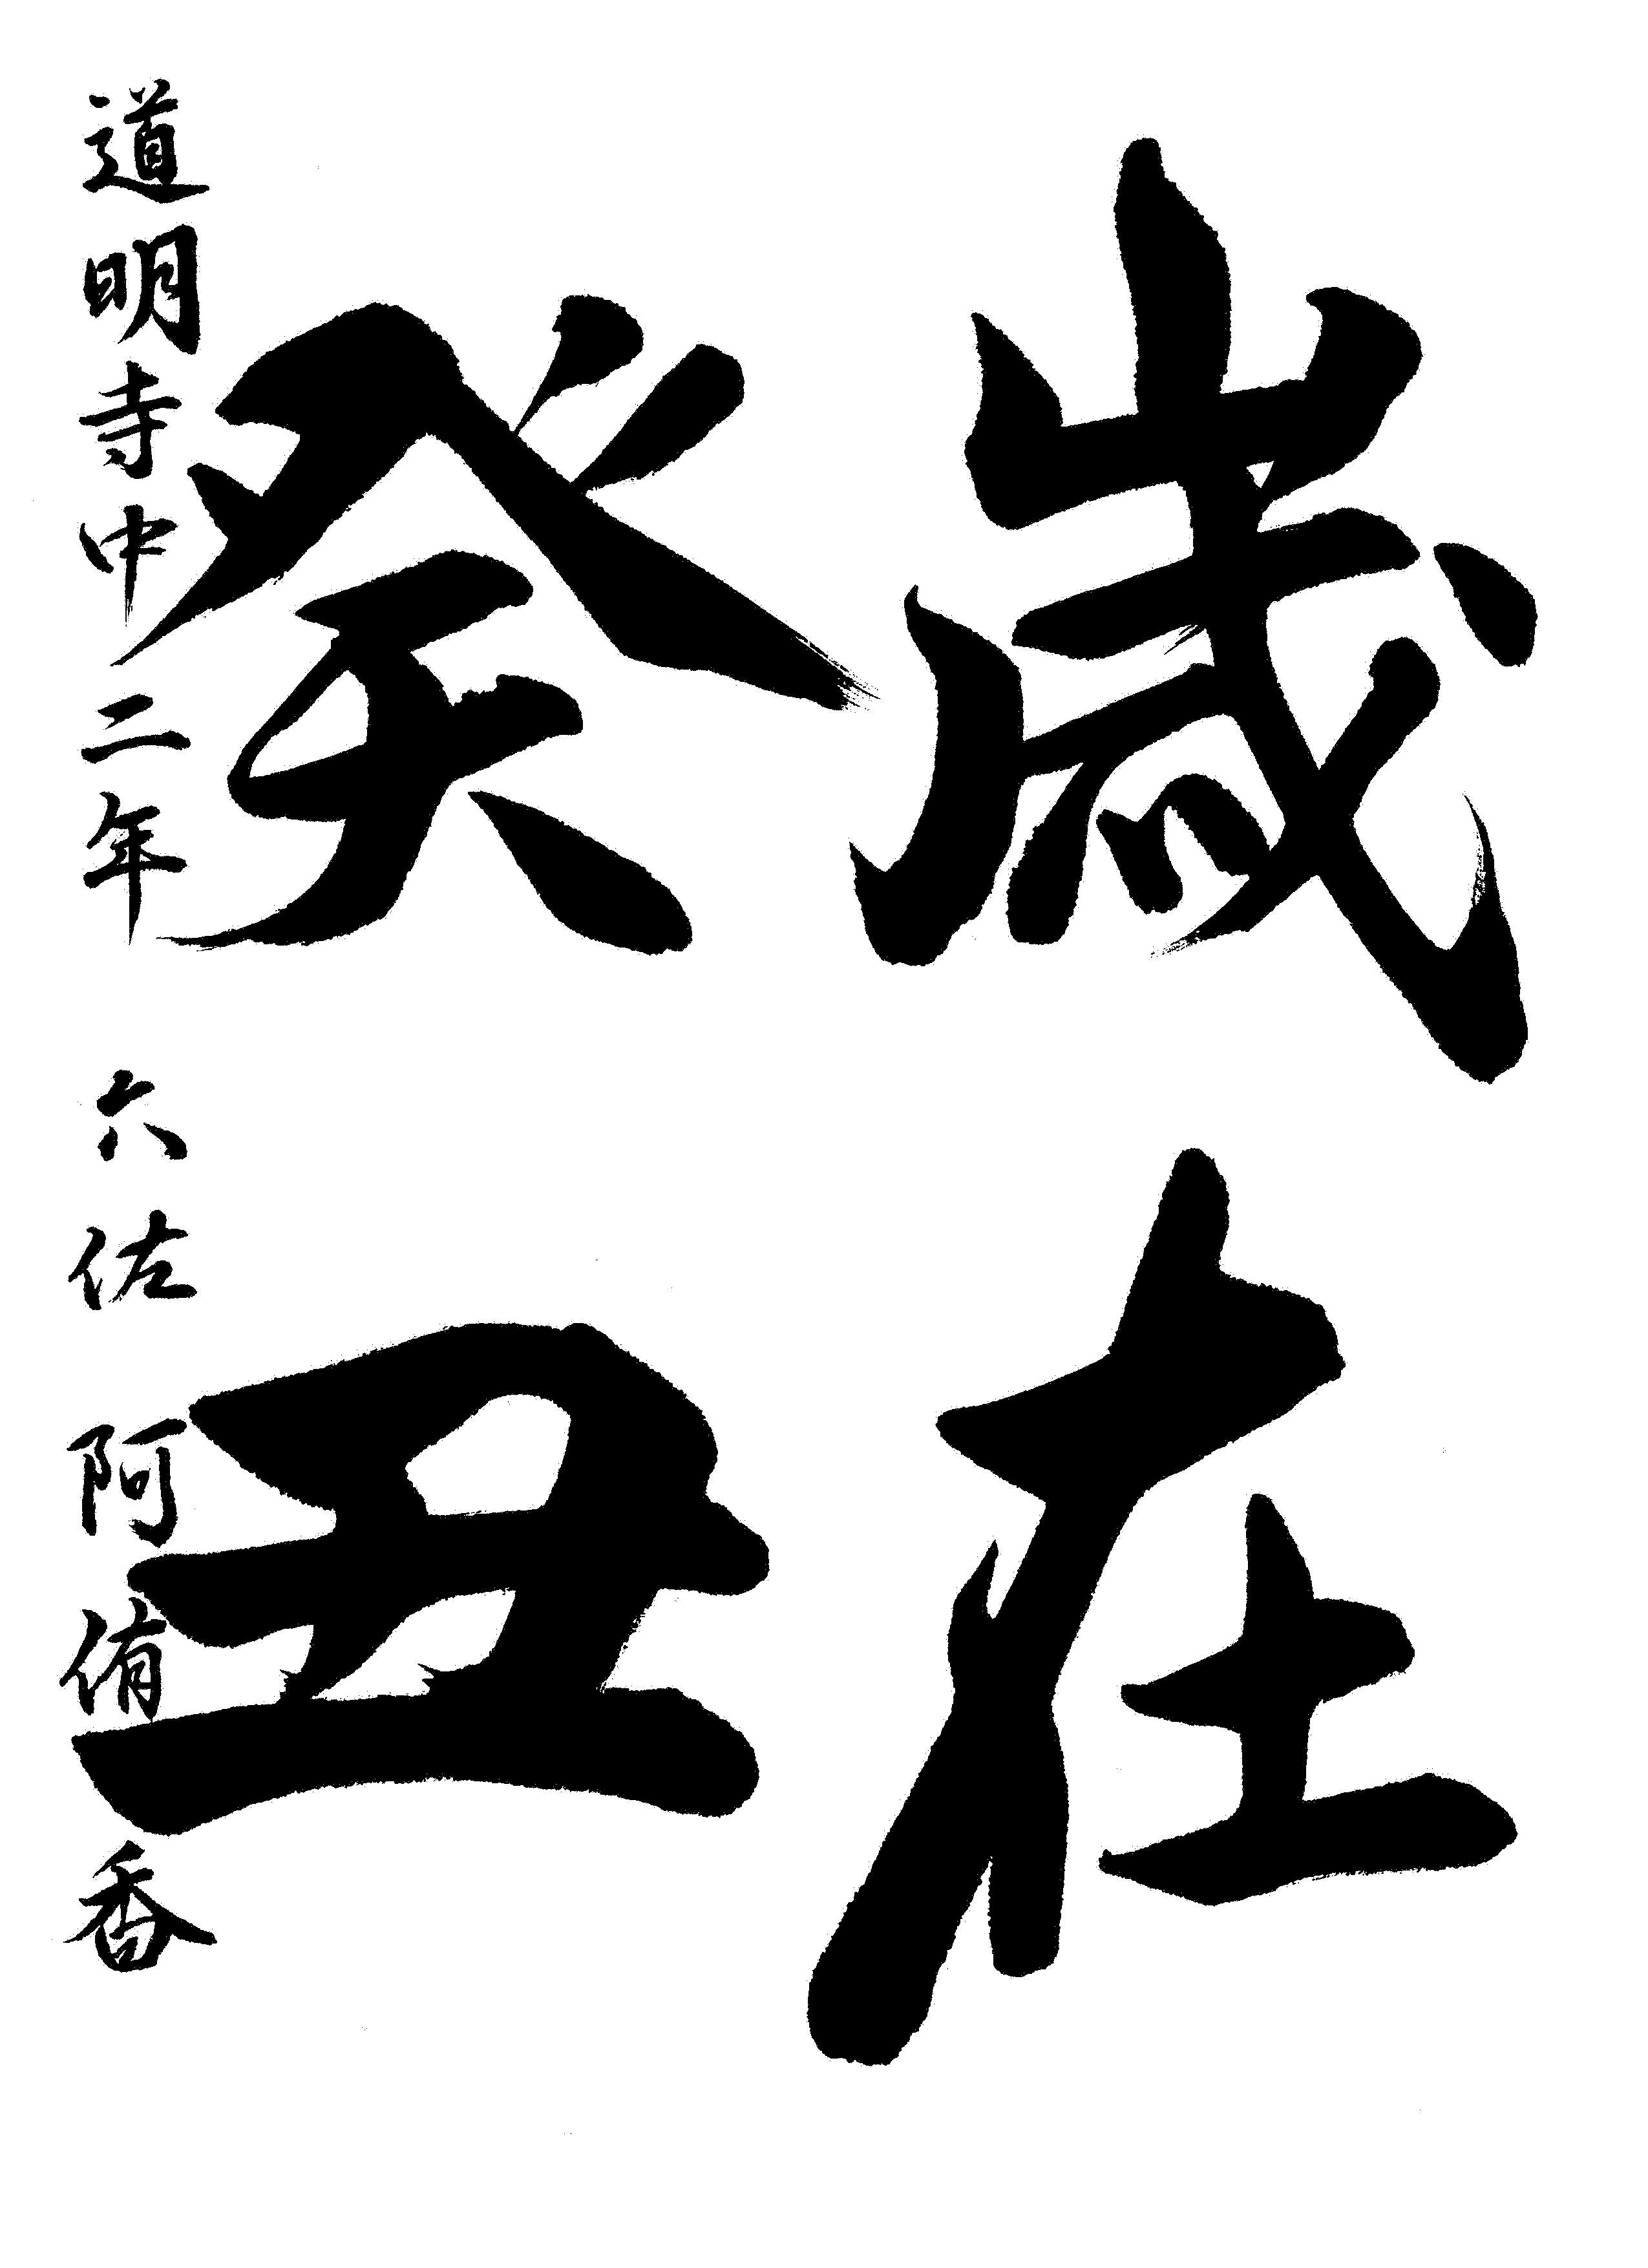 歳在
癸丑
道明寺中二年 六佐 阿侑香